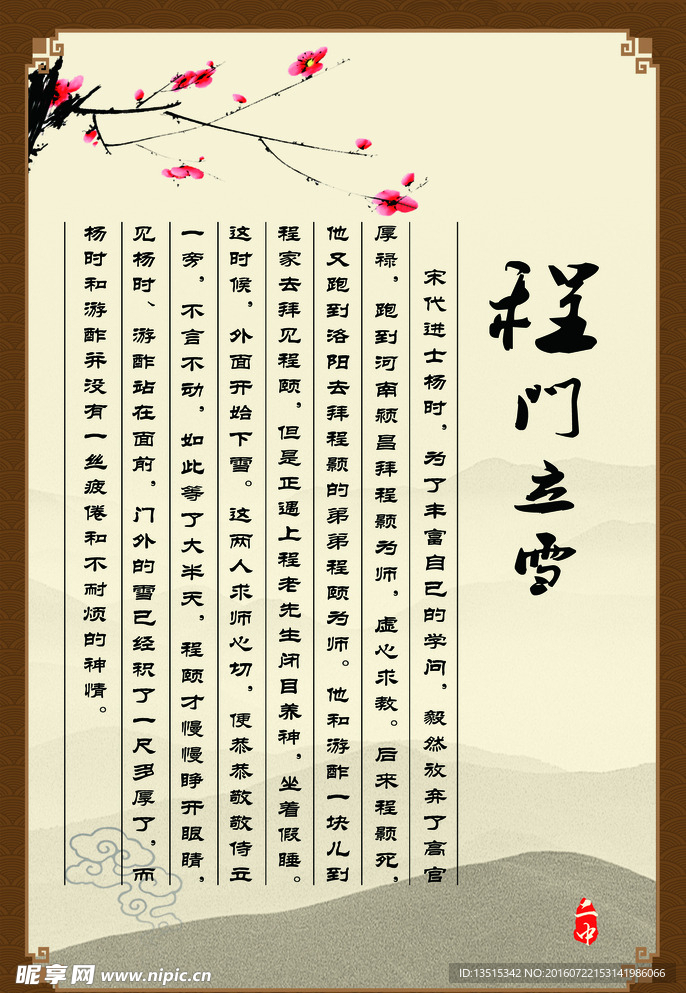 程門立雪
宋代进士杨时，为了丰富自己的学问，毅然放弃了高官
厚禄，跑到河南颍昌拜程颢为师，虚心求教。后来程颢死，
他又跑到洛阳去拜程颢的弟弟程颐为师。他和游酢一块儿到
程家去拜见程颐，但是正遇上程老先生闭目养神，坐着假睡。
这时候，外面开始下雪。这两人求师心切，便恭恭敬敬侍立
一旁，不言不动，如此等了大半天，程颐才慢慢睁开眼睛，
见杨时、游酢站在面前，门外的雪已经积了一尺多厚了，而
杨时和游酢并没有一丝疲倦和不耐烦的神情。
昵享网 www.nipic.cn
ID:13515342 NO:20160722153141986066